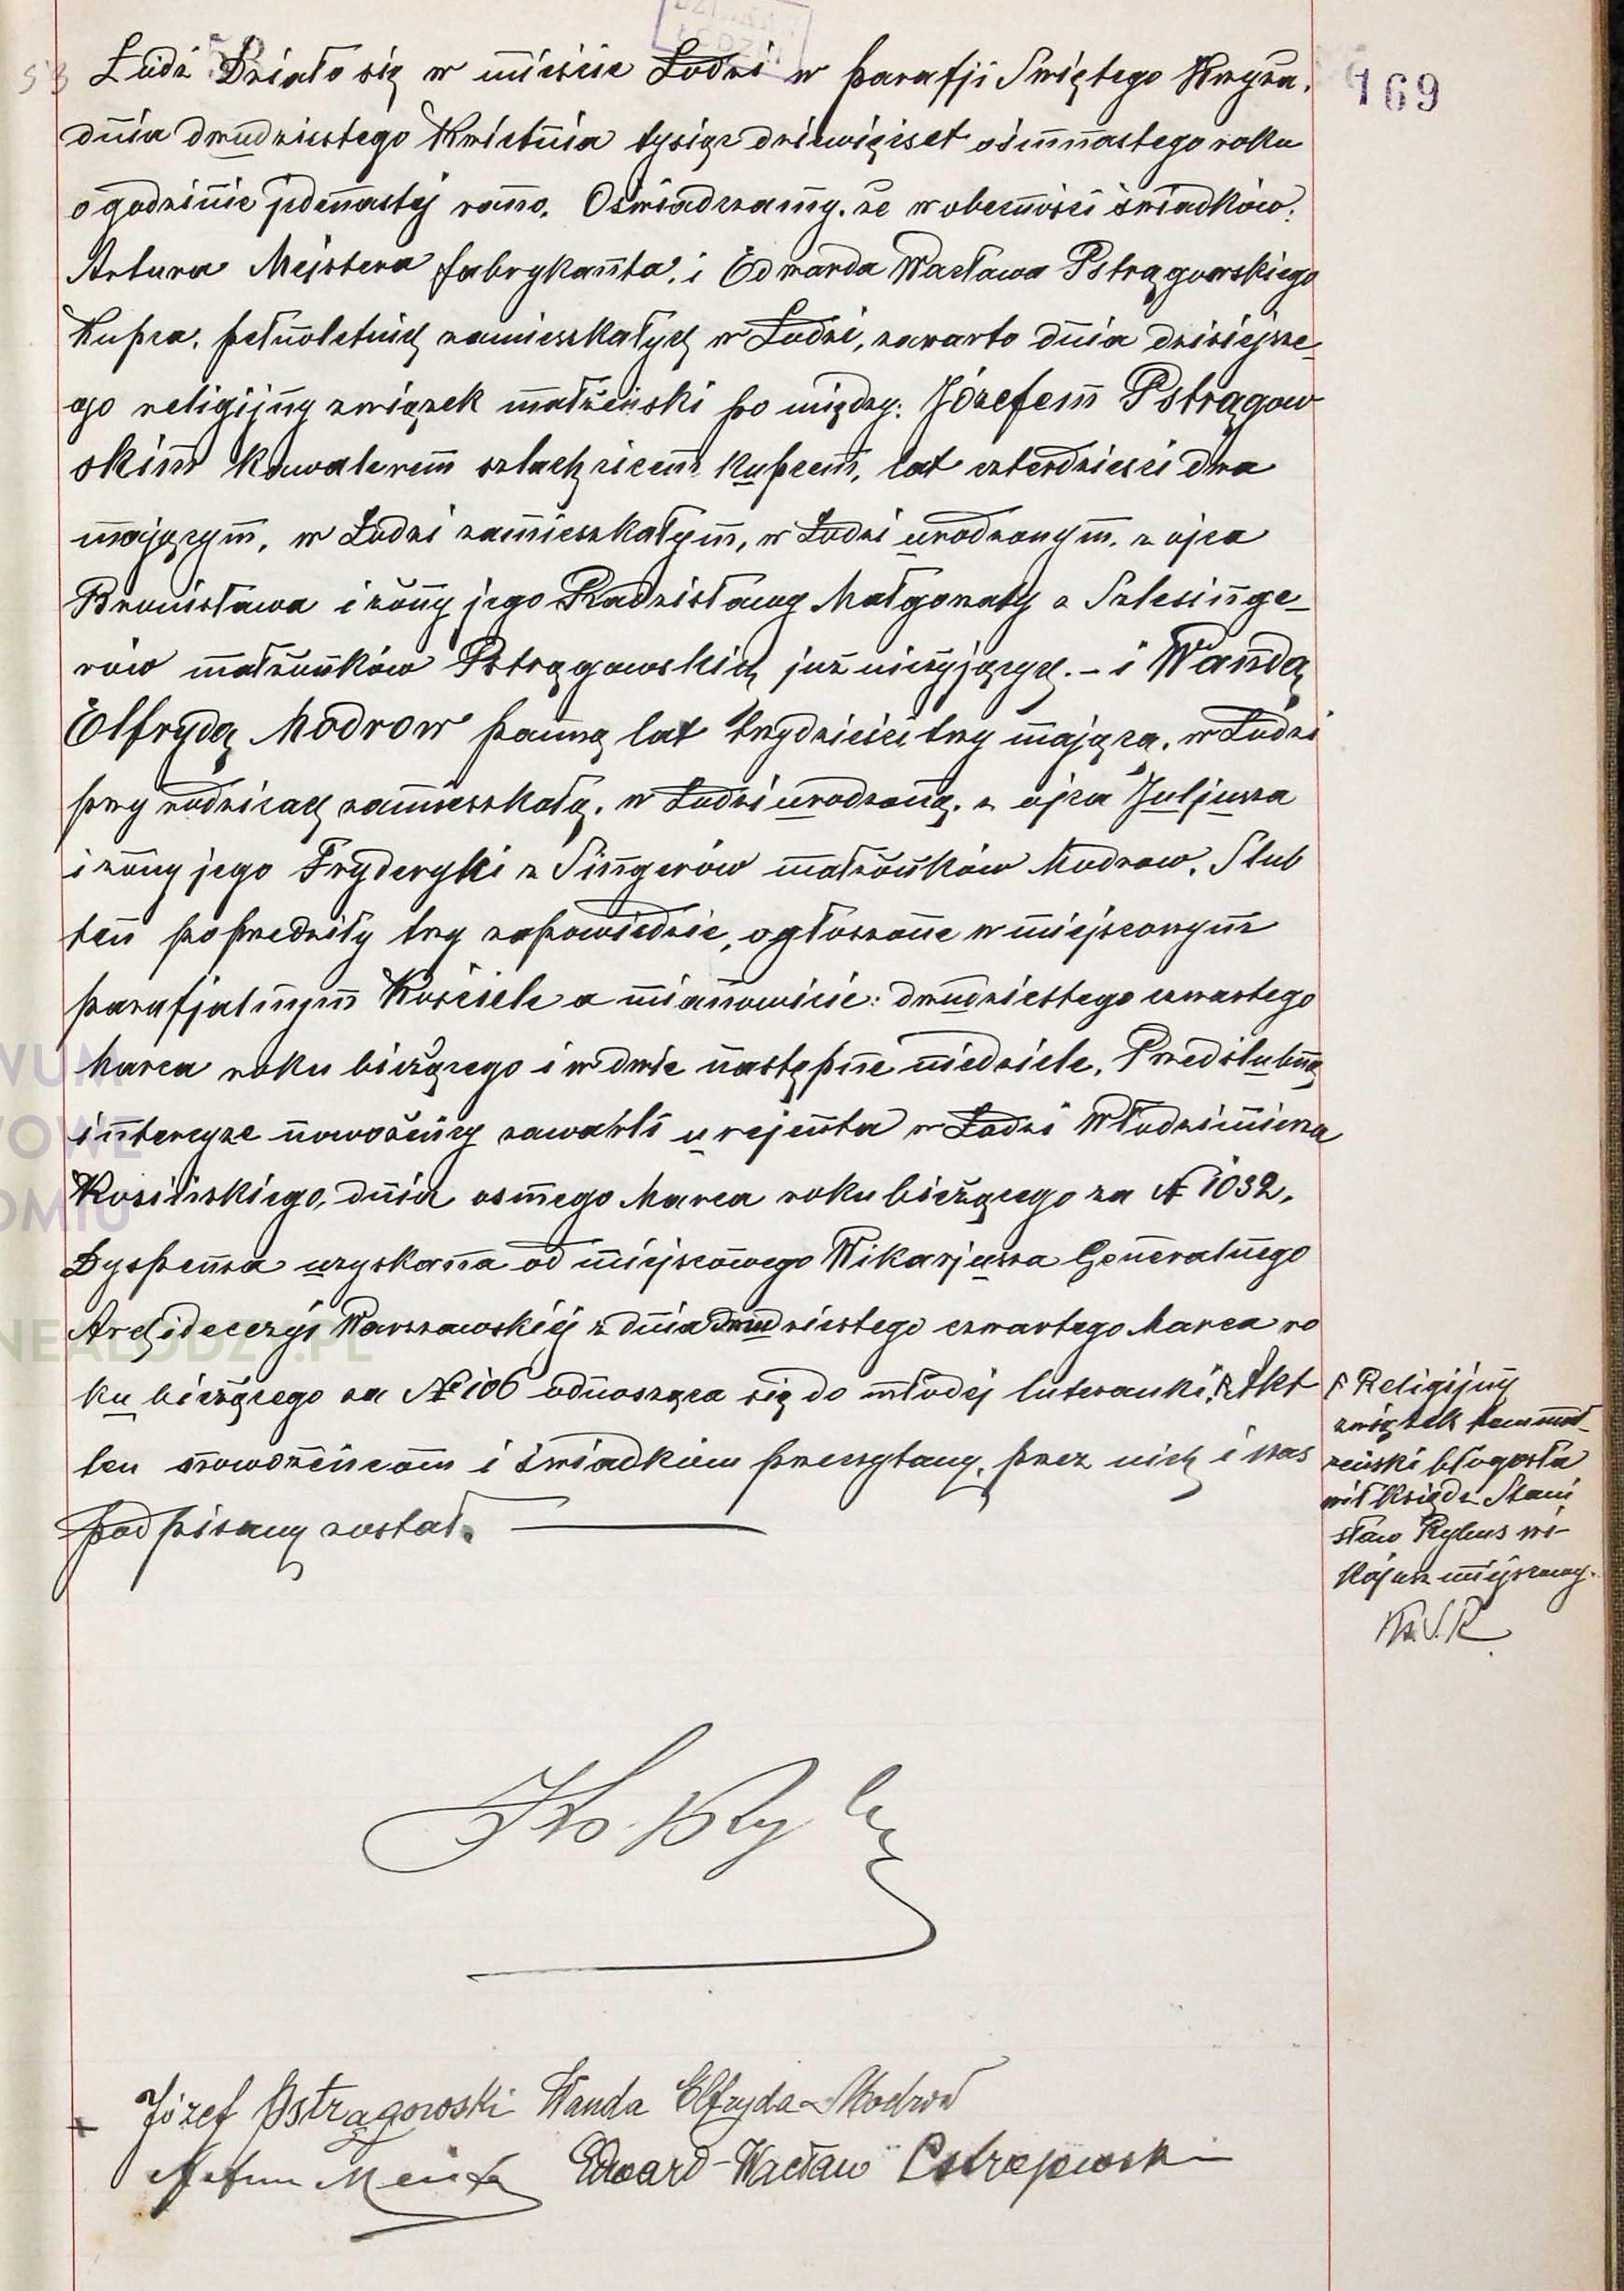 169
58
53 Łódź Działo się w mieście Łodzi w parafji Świętego Krzyża,
dnia dwudziestego Kwietnia tysiąc dziewięćset ośmnastego roku
o godzinie jedenastej rano. Oświadczamy, że w obecności świadków:
Artura Mejstera fabrykanta, i Edwarda Wacława Pstrągowskiego
Kupca, pełnoletnich zamieszkałych w Łodzi, zawarto dnia dzisiejsze-
go religijny związek małżeński po między: Józefem Pstrągow
skim kawalerem szlachcicem kupcem, lat czterdzieści dwa
mającym, w Łodzi zamieszkałym, w Łodzi urodzonym, z ojca
Bronisława i żony jego Radzisławy Małgorzaty z Szlesinge-
rów małżonków Pstrągowskich już nieżyjących. – i Wandą
Elfrydą Modrow panną lat trzydzieści trzy mającą, w Łodzi
przy rodzicach zamieszkałą, w Łodzi urodzoną, z ojca Juljusza
i żony jego Fryderyki z Singerów małżonków Modrow. Ślub
ten poprzedziły trzy zapowiedzie, ogłoszone w miejscowym
parafjalnym Kościele a mianowicie: dwudziestego czwartego
Marca roku bieżącego i w dwie następne niedziele. Przedślubną
intercyze nowożeńcy zawarli u rejenta w Łodzi Włodzimierza
Kosińskiego, dnia osmego Marca roku bieżącego za № 1032.
Dyspensa uzyskana od miejscowego Wikarjusza Generalnego
Archidecezyi Warszawskiej z dnia dwudziestego czwartego Marca ro
ku bieżącego za № 106 odnosząca się do młodej luteranki. Akt
ten nowożeńcom i świadkom przeczytany, przez nich i nas
podpisany został.
Religijny
związek ten mał-
żeński błogosła
wił ksiądz Stani
sław Rybus wi-
karjusz miejscowy.
Ks. S. R.
Józef Pstrągowski Wanda Elfryda Modrow
Artur Meister Edward-Wacław Pstrągowski